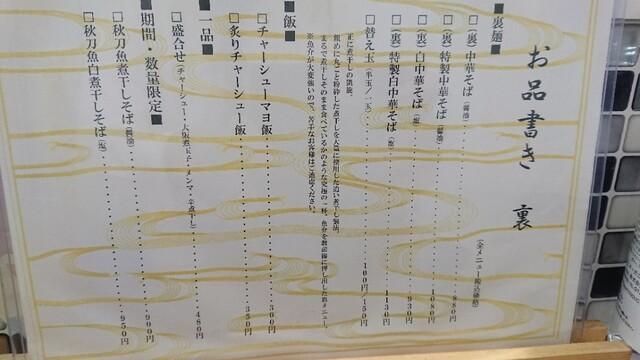 お品書き 裏
■裏麺■ (全メニュー税込価格)
□(裏)中華そば(醤油)・・・880円
□(裏)特製中華そば(醤油)・・・1080円
□(裏)白中華そば(塩)・・・930円
□(裏)特製白中華そば(塩)・・・1130円
□替え玉(半玉/一玉)・・・100円/150円
正に煮干しの凱旋。
粗めに丸ごと粉砕した煮干しを大量に使用した追い煮干し製法。
まるで煮干しそのまま食べているかのような究極の一杯。
※魚介が大変強いので、苦手なお客様はご遠慮ください。
■飯■
□チャーシューマヨ飯・・・300円
□炙りチャーシュー飯・・・350円
■一品■
□盛合せ(チャーシュー・大阪煮玉子・メンマ・辛煮干し)・・・480円
■期間・数量限定■
□秋刀魚煮干しそば(醤油)・・・900円
□秋刀魚白煮干しそば(塩)・・・950円